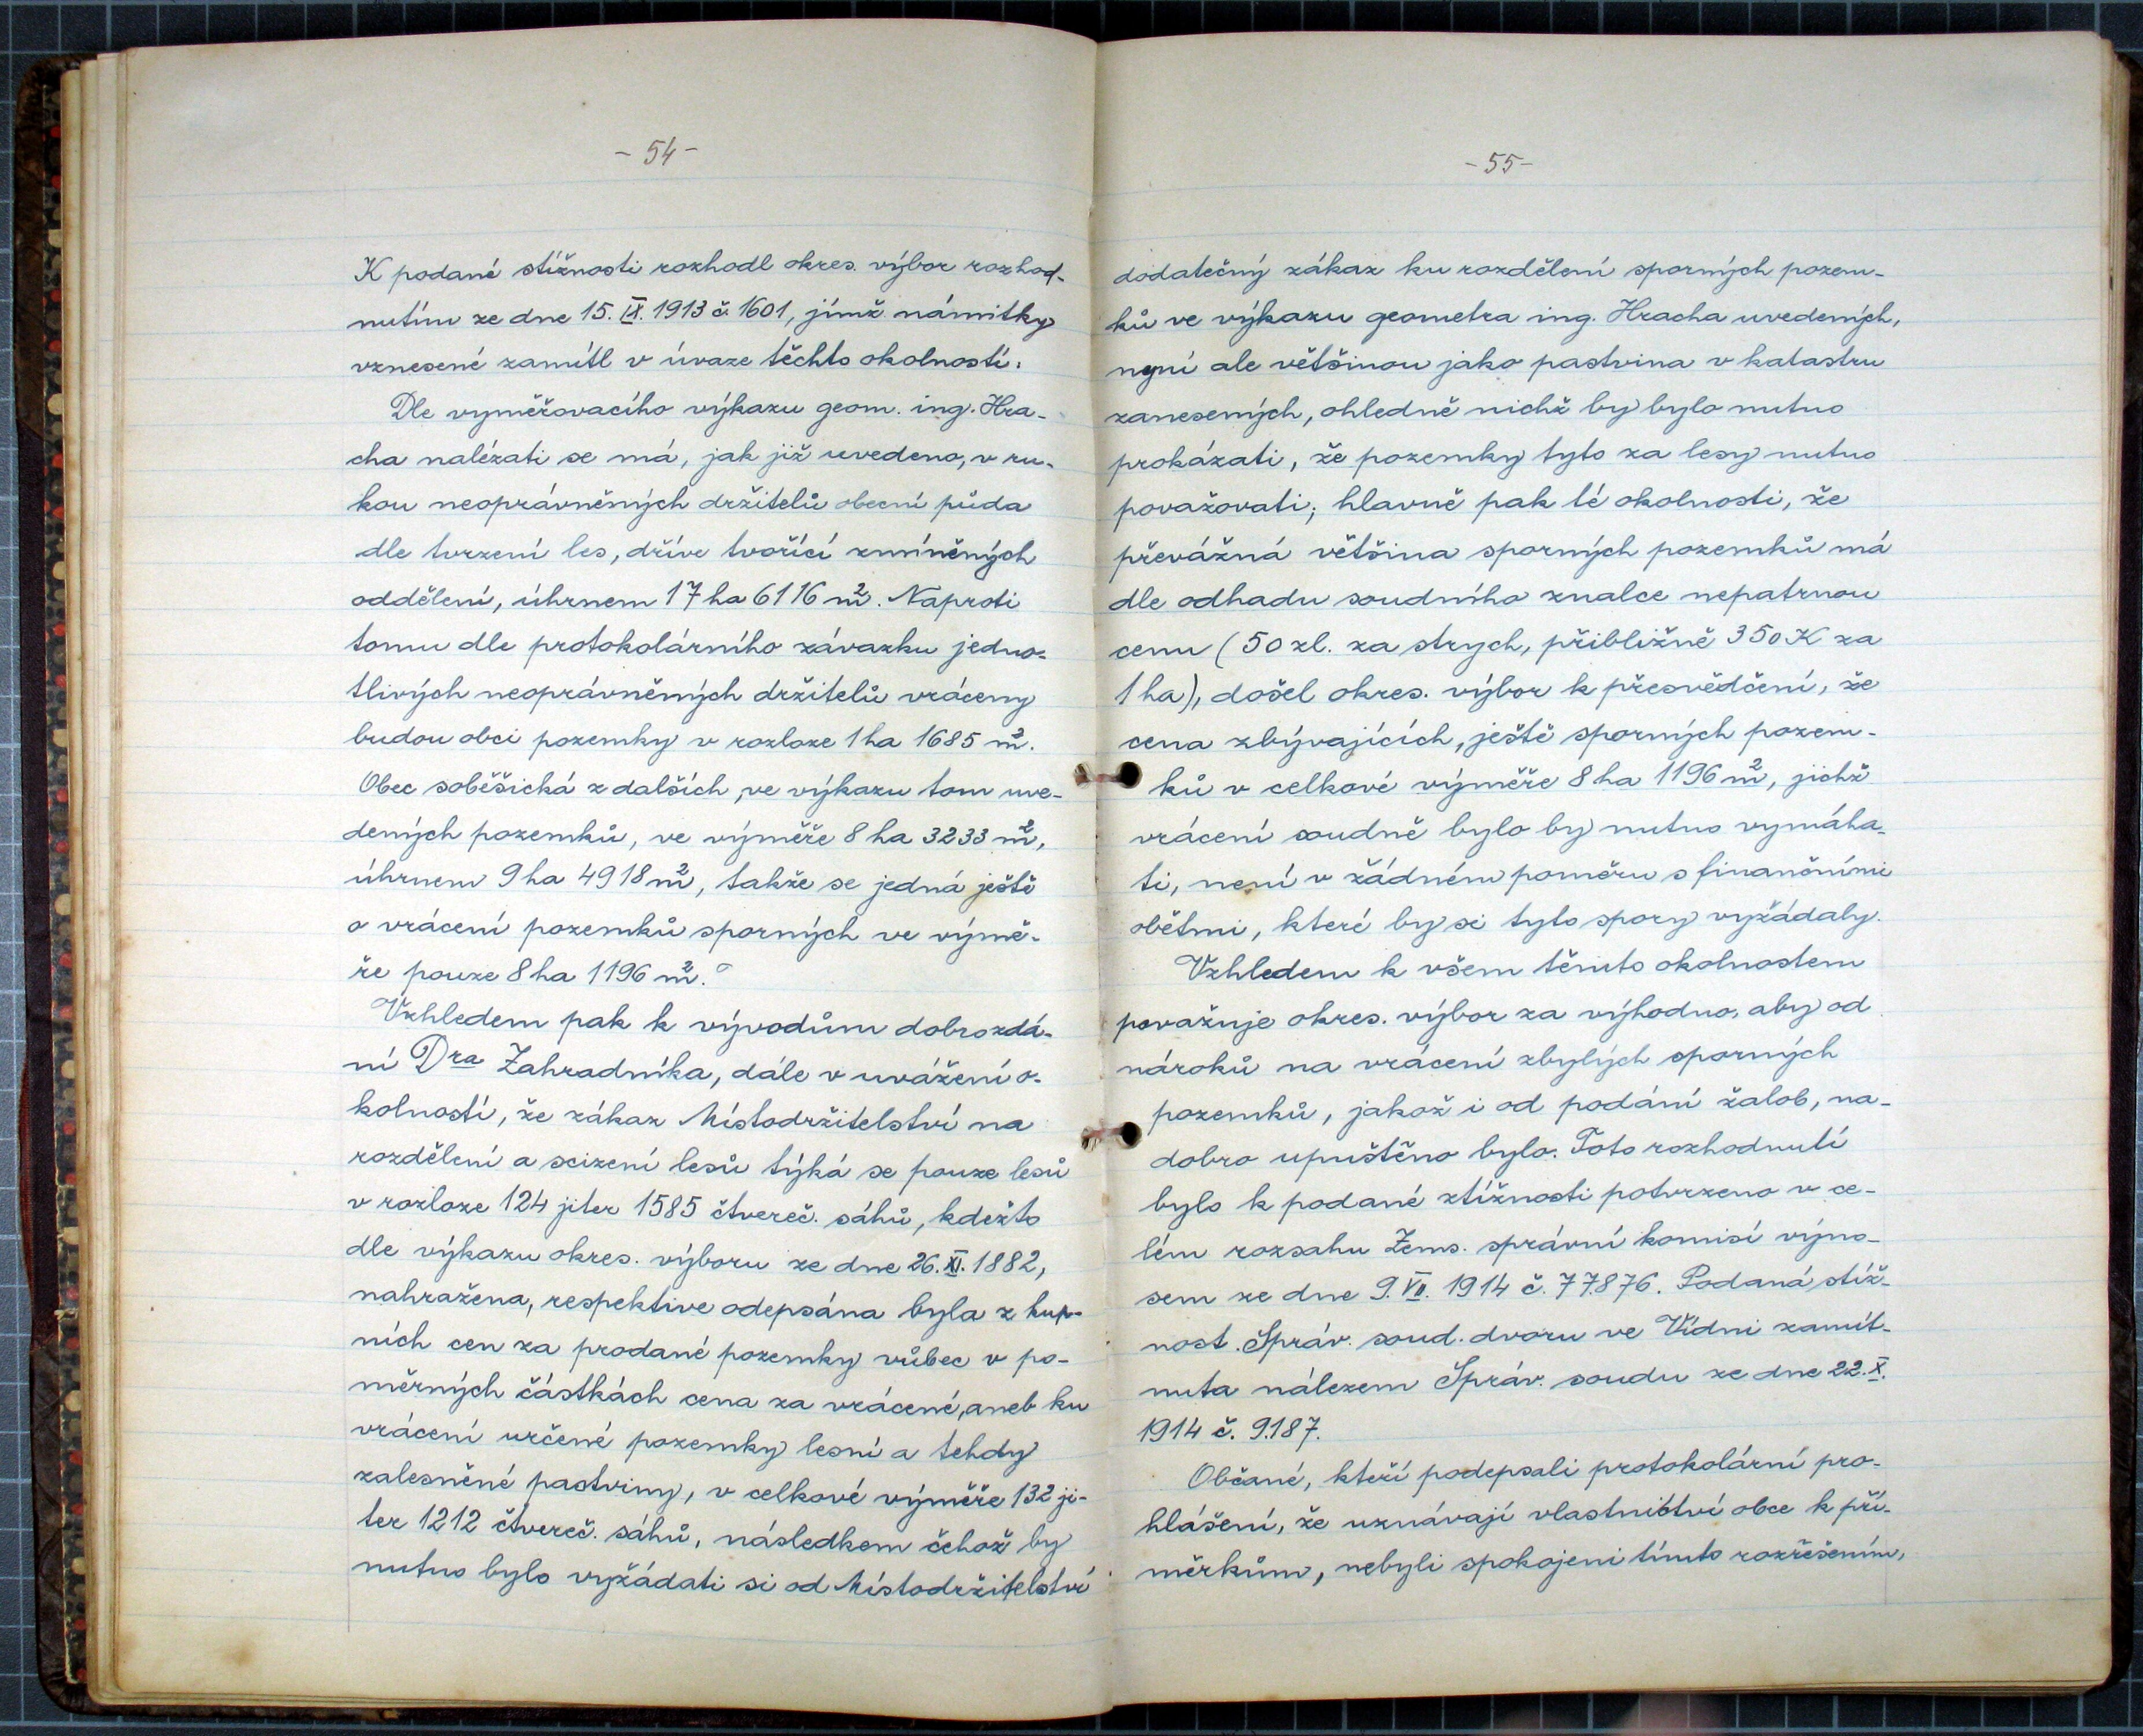 - 54 -
K podané stížnosti rozhodl okres. výbor rozhod-
nutím ze dne 15. IX. 1913 č. 1601, jímž námitky
vznesené zamítl v úvaze těchto okolností:
Dle vyměřovacího výkazu geom. ing. Hra-
cha nalézati se má, jak již uvedeno, v ru-
kou neoprávněných držitelů obecní půda
dle tvrzení les, dříve tvořící zmíněných
oddělení, úhrnem 17 ha 6116 m². Naproti
tomu dle protokolárního závazku jedno-
tlivých neoprávněných držitelů vráceny
budou obci pozemky v rozloze 1 ha 1685 m².
Obec soběšická z dalších, ve výkazu tom uve-
dených pozemků, ve výměře 8 ha 3233 m²,
úhrnem 9 ha 4918 m², takže se jedná ještě
o vrácení pozemků sporných ve výmě-
ře pouze 8 ha 1196 m².
Vzhledem pak k vývodům dobrozdá-
ní Dra Zahradníka, dále v uvážení o-
kolností, že zákaz Místodržitelství na
rozdělení a scizení lesů týká se pouze lesů
v rozloze 124 jiter 1585 čtvereč. sáhů, kdežto
dle výkazu okres. výboru ze dne 26. XI. 1882,
nahražena, respektive odepsána byla z kup-
ních cen za prodané pozemky vůbec v po-
měrných částkách cena za vrácené, aneb ku
vrácení určené pozemky lesní a tehdy
zalesněné pastviny, v celkové výměře 132 ji-
ter 1212 čtvereč. sáhů, následkem čehož by
nutno bylo vyžádati si od Místodržitelství
- 55 -
dodatečný zákaz ku rozdělení sporných pozem-
ků ve výkazu geometra ing. Hracha uvedených,
nyní ale většinou jako pastvina v katastru
zanesených, ohledně nichž by bylo nutno
prokázati, že pozemky tyto za lesy nutno
považovati; hlavně pak té okolnosti, že
převážná většina sporných pozemků má
dle odhadu soudního znalce nepatrnou
cenu (50 zl. za strych, přibližně 350 K za
1 ha), došel okres. výbor k přesvědčení, že
cena zbývajících, ještě sporných pozem-
ků v celkové výměře 8 ha 1196 m², jichž
vrácení soudně bylo by nutno vymáha-
ti, není v žádném poměru s finančními
obětmi, které by si tyto spory vyžádaly.
Vzhledem k všem těmto okolnostem
považuje okres. výbor za výhodno, aby od
nároků na vrácení zbylých sporných
pozemků, jakož i od podání žalob, na-
dobro upuštěno bylo. Toto rozhodnutí
bylo k podané ztížnosti potvrzeno v ce-
lém rozsahu Zems. správní komisí výno-
sem ze dne 9. VII. 1914 č. 77.876. Podaná stíž-
nost Správ. soud. dvoru ve Vídni zamít-
nuta nálezem Správ. soudu ze dne 22. X.
1914 č. 9.187.
Občané, kteří podepsali protokolární pro-
hlášení, že uznávají vlastnictví obce k pří-
měrkům, nebyli spokojeni tímto rozřešením,